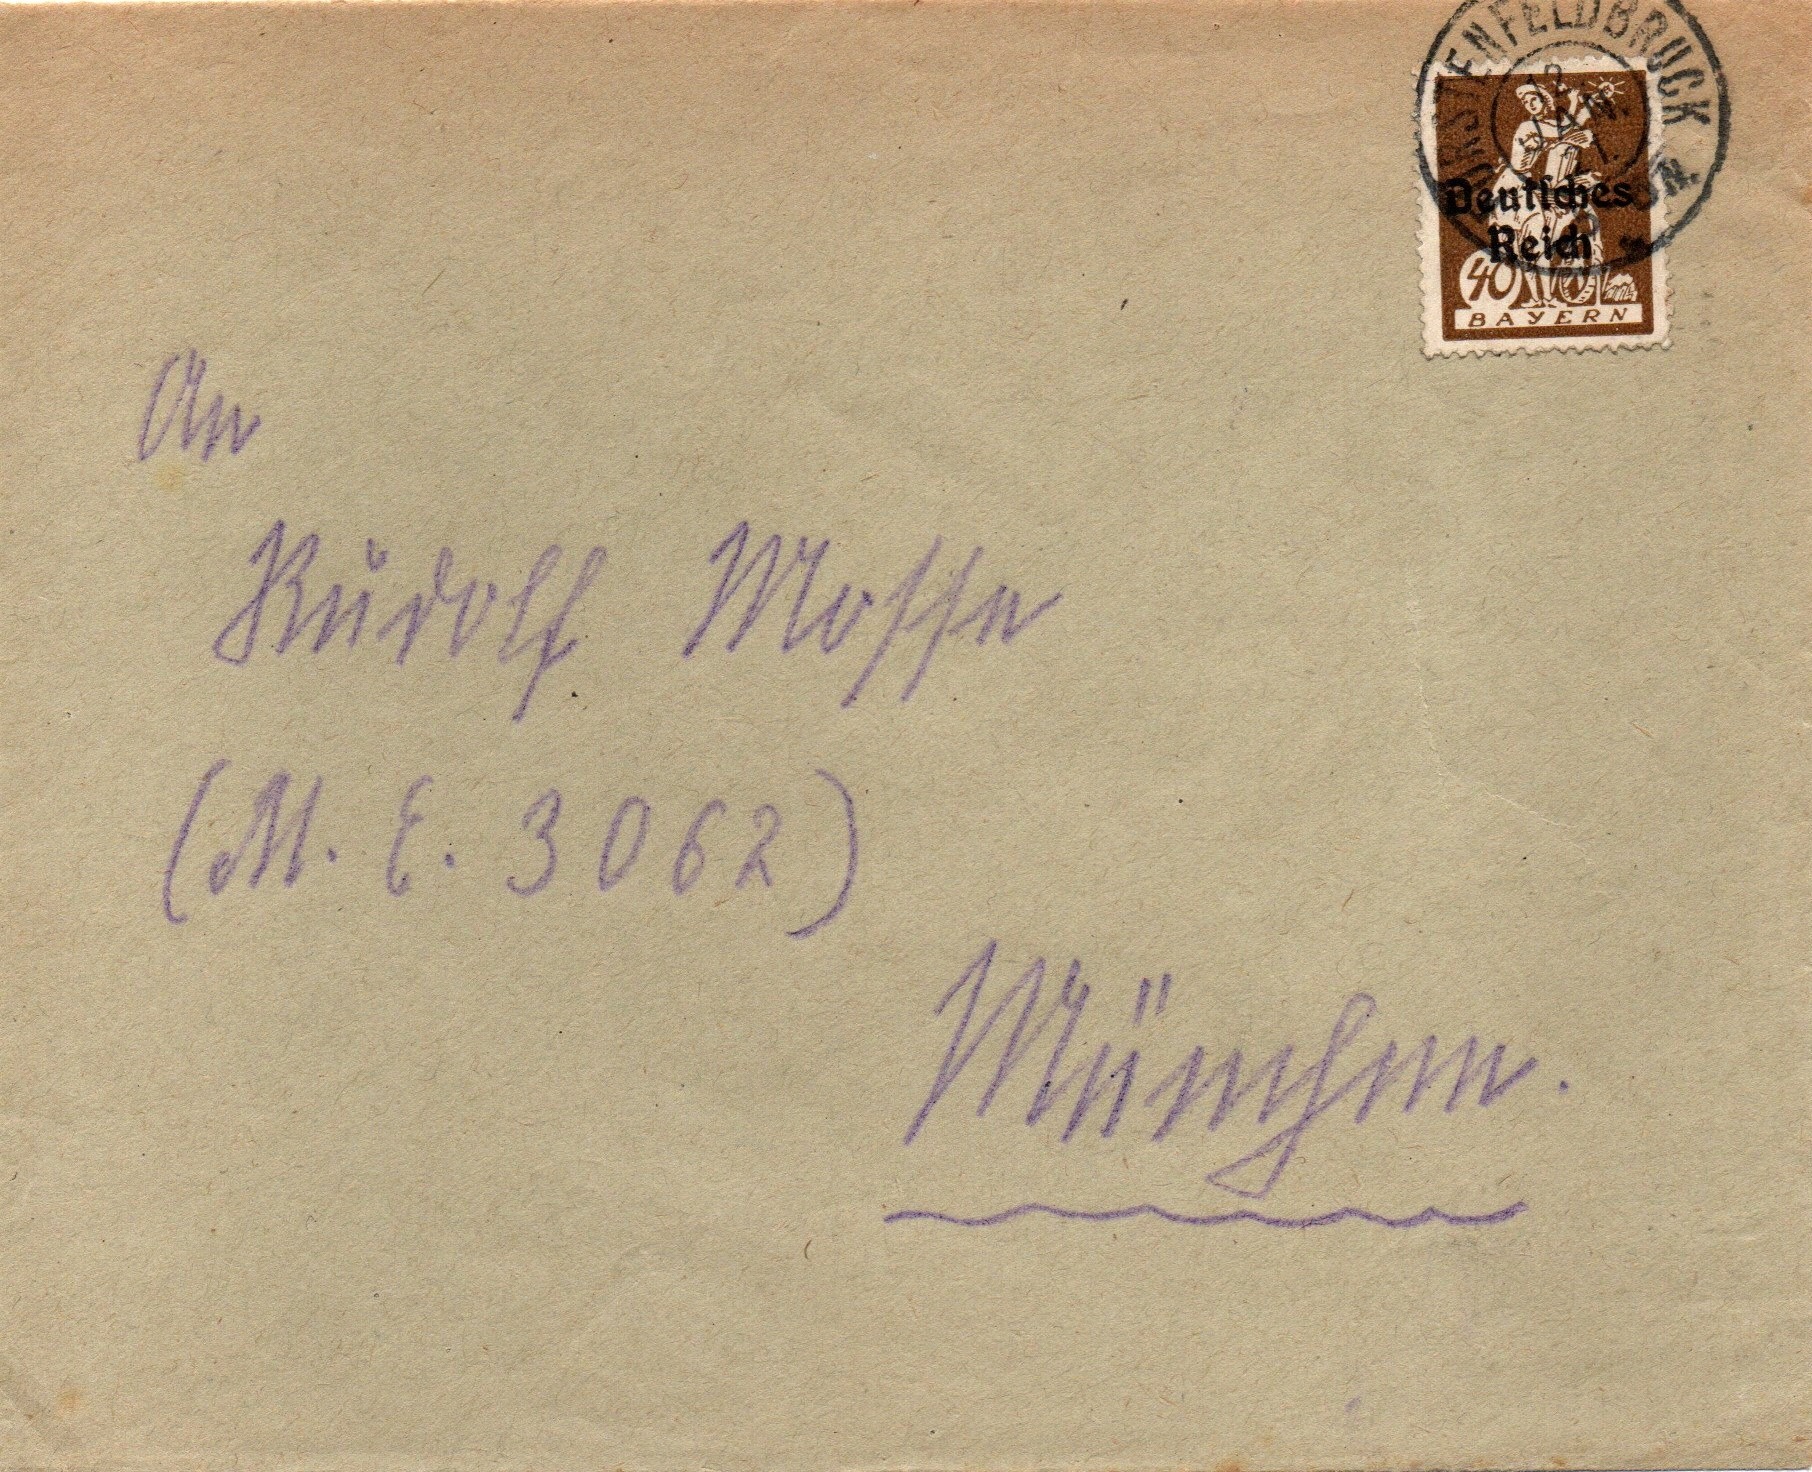 FÜRSTENFELDBRUCK
12
JAN.
21.
Deutsches
Reich
40
BAYERN
An
Rudolf Mosse
(M. E. 3062)
München.